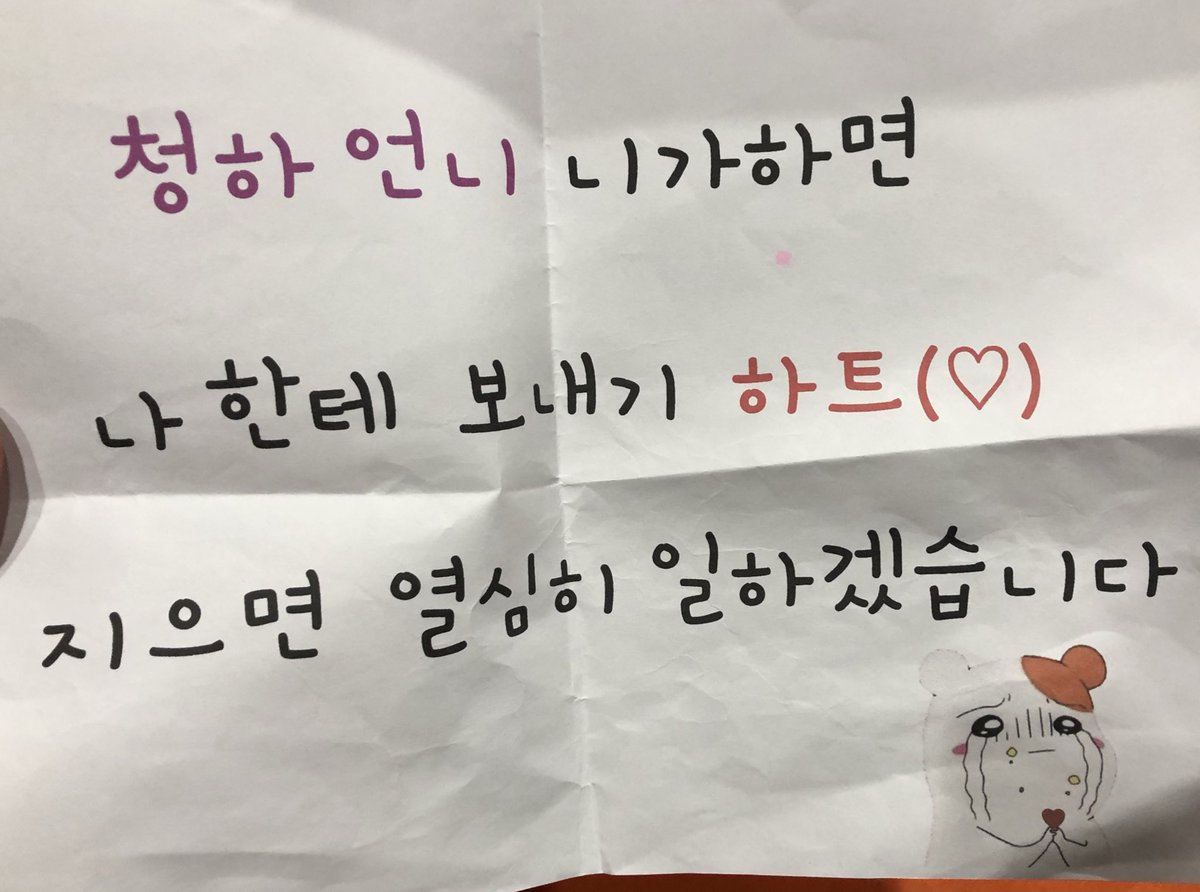 청하 언니 니가하면
나한테 보내기 하트(♡)
지으면 열심히 일하겠습니다